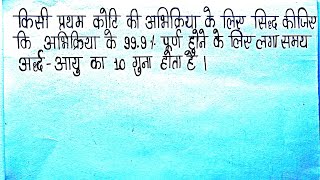 किसी प्रथम कोटि की अभिक्रिया के लिए सिद्ध कीजिए
कि अभिक्रिया के 99.9% पूर्ण होने के लिए लगा समय
अर्द्ध-आयु का 10 गुना होता है।